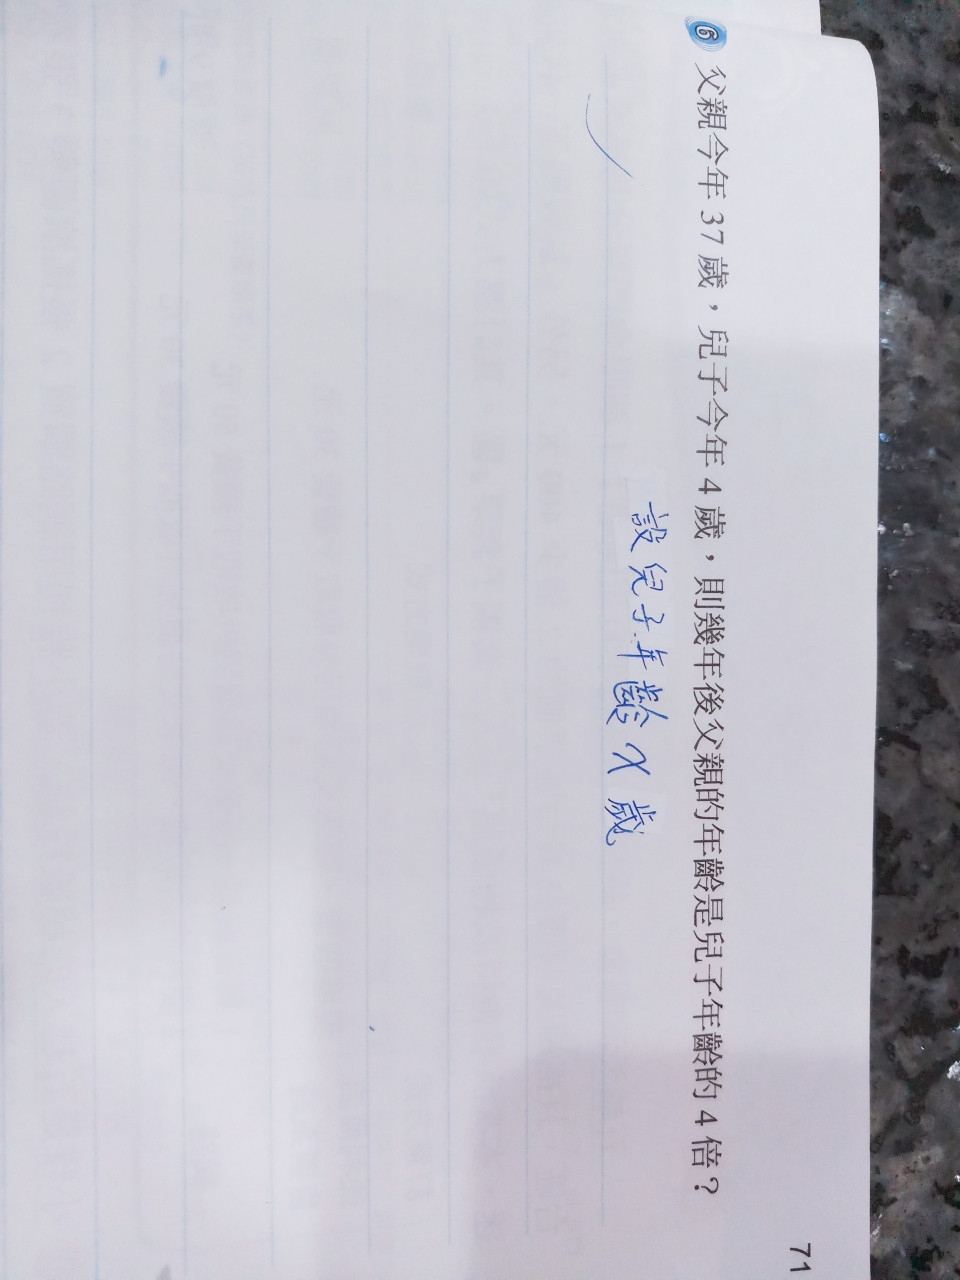 6 父親今年 37 歲，兒子今年 4 歲，則幾年後父親的年齡是兒子年齡的 4 倍？
設兒子年齡 x 歲
71